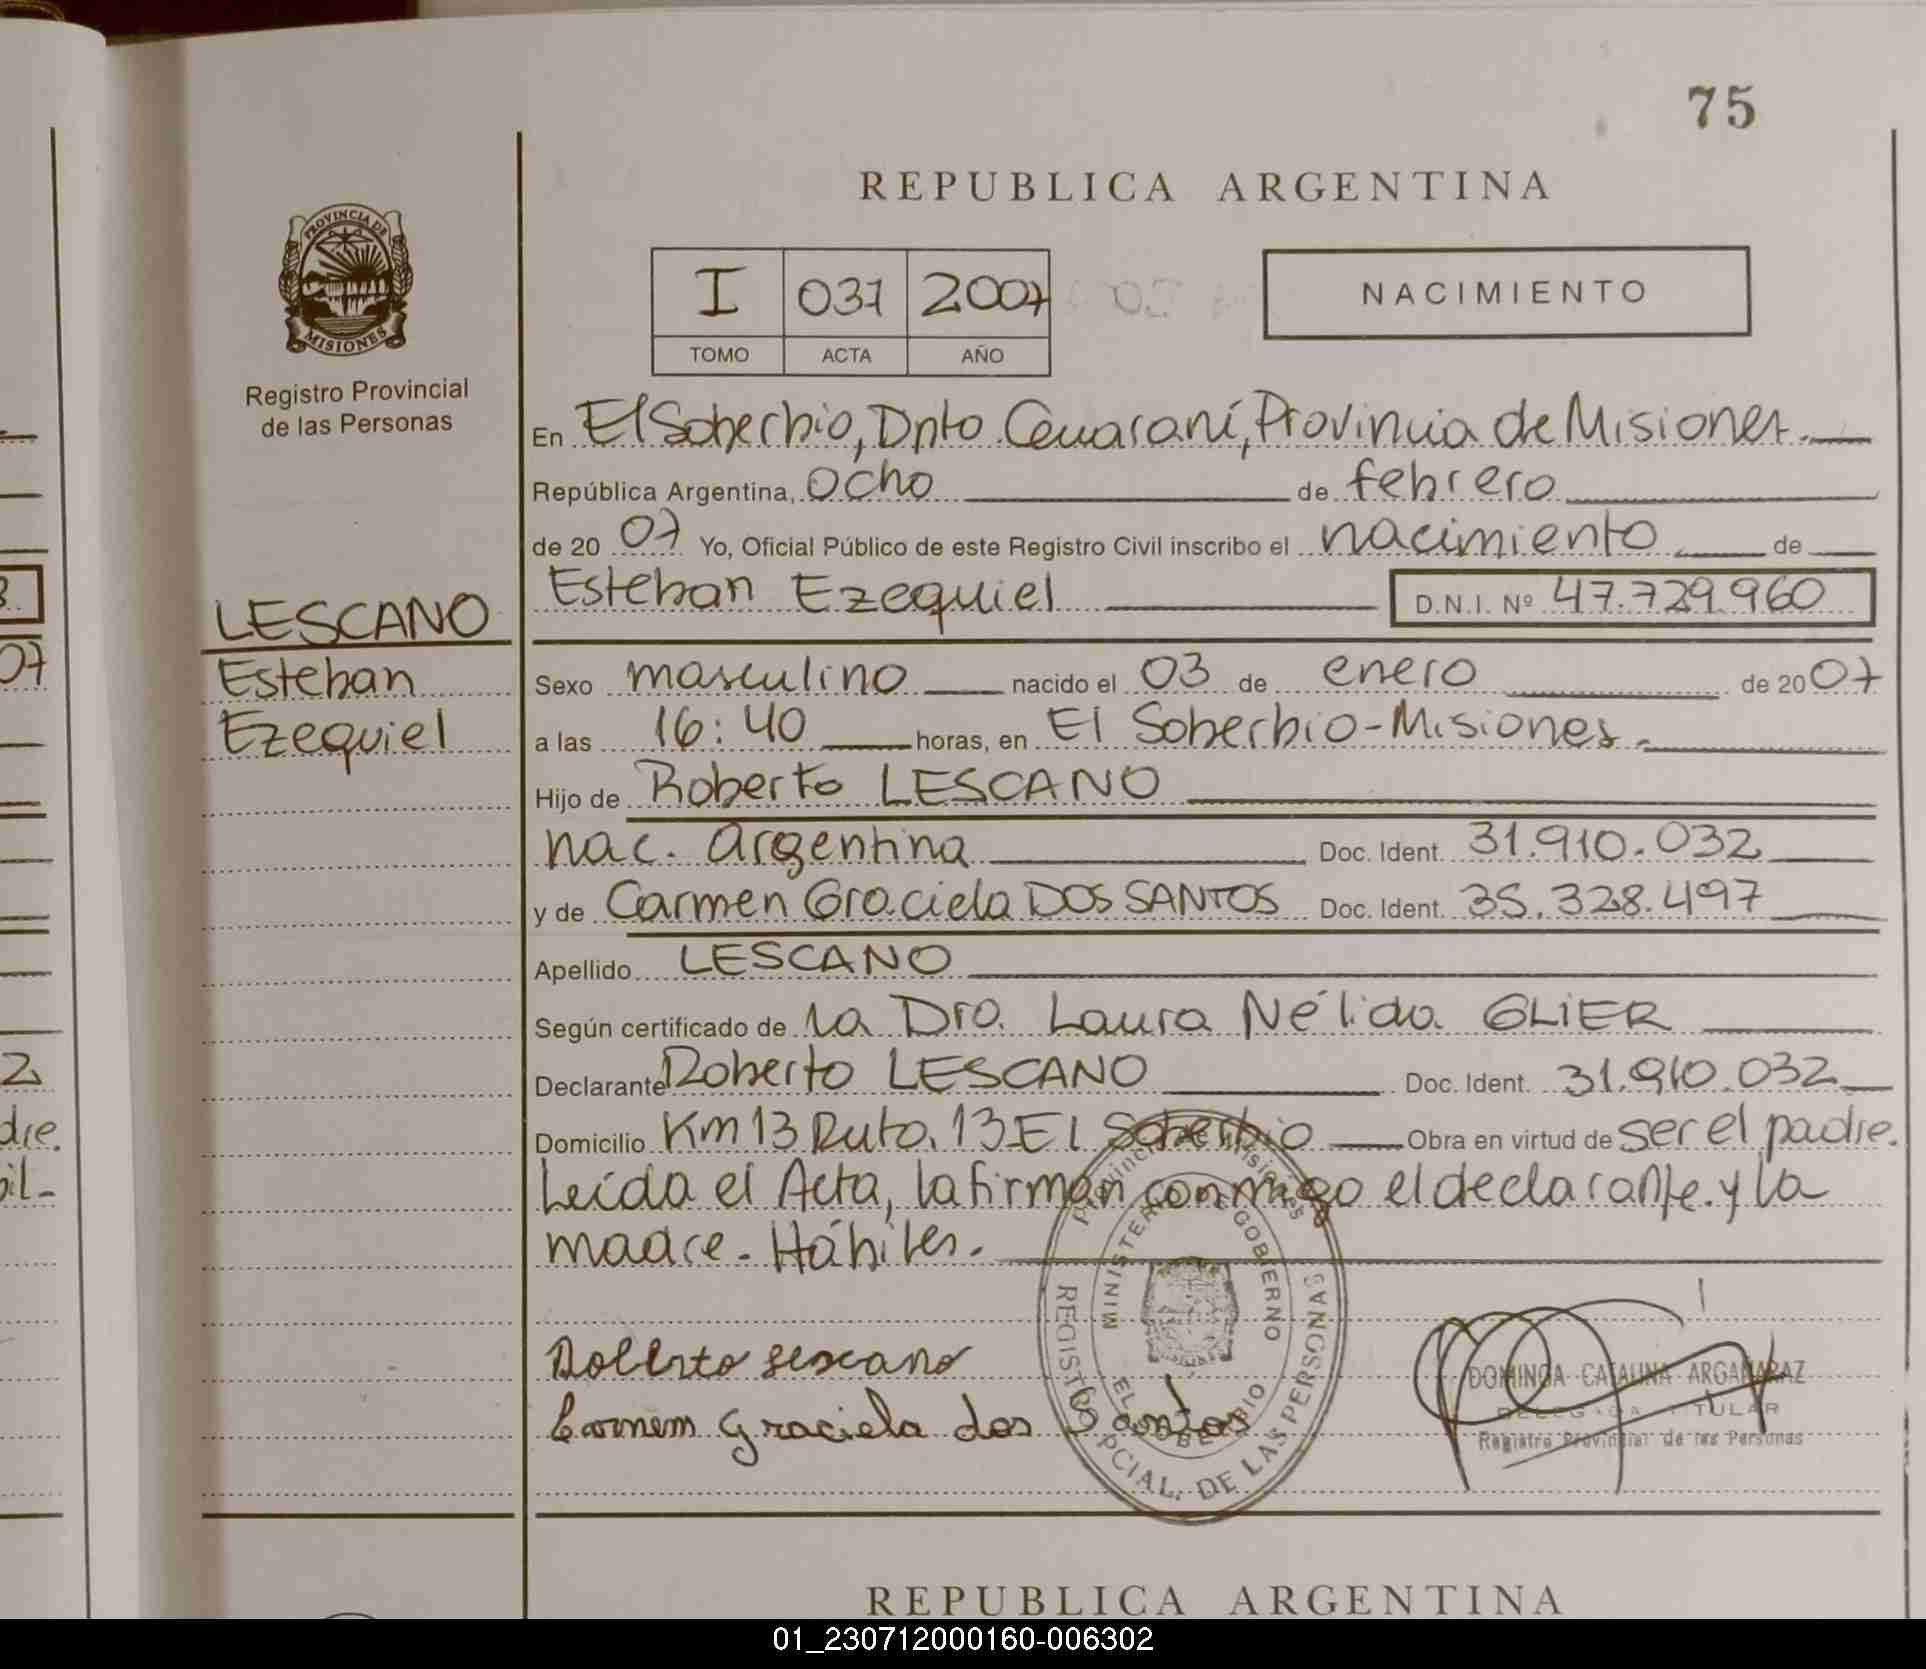 75
REPUBLICA ARGENTINA
PROVINCIA DE
MISIONES
Registro Provincial
de las Personas
I 031 2007
TOMO ACTA AÑO
NACIMIENTO
En El Soberbio, Dpto. Guaraní, Provincia de Misiones.
República Argentina, Ocho de febrero
de 20 07 Yo, Oficial Público de este Registro Civil inscribo el nacimiento de
Esteban Ezequiel D.N.I. Nº 47.729.960
LESCANO
Esteban
Ezequiel
Sexo masculino nacido el 03 de enero de 2007
a las 16:40 horas, en El Soberbio-Misiones.
Hijo de Roberto LESCANO
nac. argentina Doc. Ident. 31.910.032
y de Carmen Graciela DOS SANTOS Doc. Ident. 35.328.497
Apellido LESCANO
Según certificado de la Dra. Laura Nélida GLIER
Declarante Roberto LESCANO Doc. Ident. 31.910.032
Domicilio Km 13 Ruta. 13 El Soberbio Obra en virtud de ser el padre.
Leída el Acta, la firman conmigo el declarante. y la
madre. Hábiles.
Provincia de Misiones
MINISTERIO DE GOBIERNO
EL SOBERBIO
REGISTRO PCIAL. DE LAS PERSONAS
Roberto Lescano
Carmem Graciela dos Santos
DOMINGA CATALINA ARGAÑARAZ
DELEGADA TITULAR
Registro Provincial de las Personas
REPUBLICA ARGENTINA
07
2
dre.
bil-
01_230712000160-006302